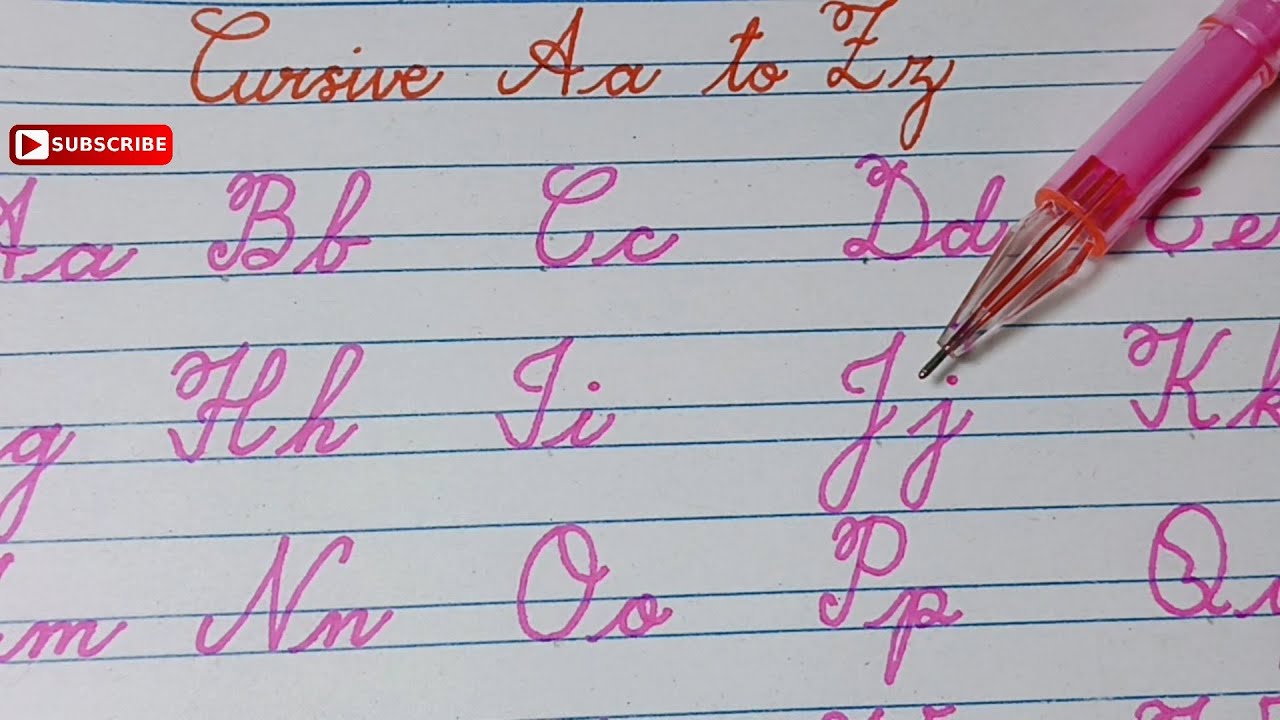 Cursive Aa to Zz
SUBSCRIBE
Aa Bb Cc Dd Ee
g Hh Ii Jj Kk
m Nn Oo Pp Q